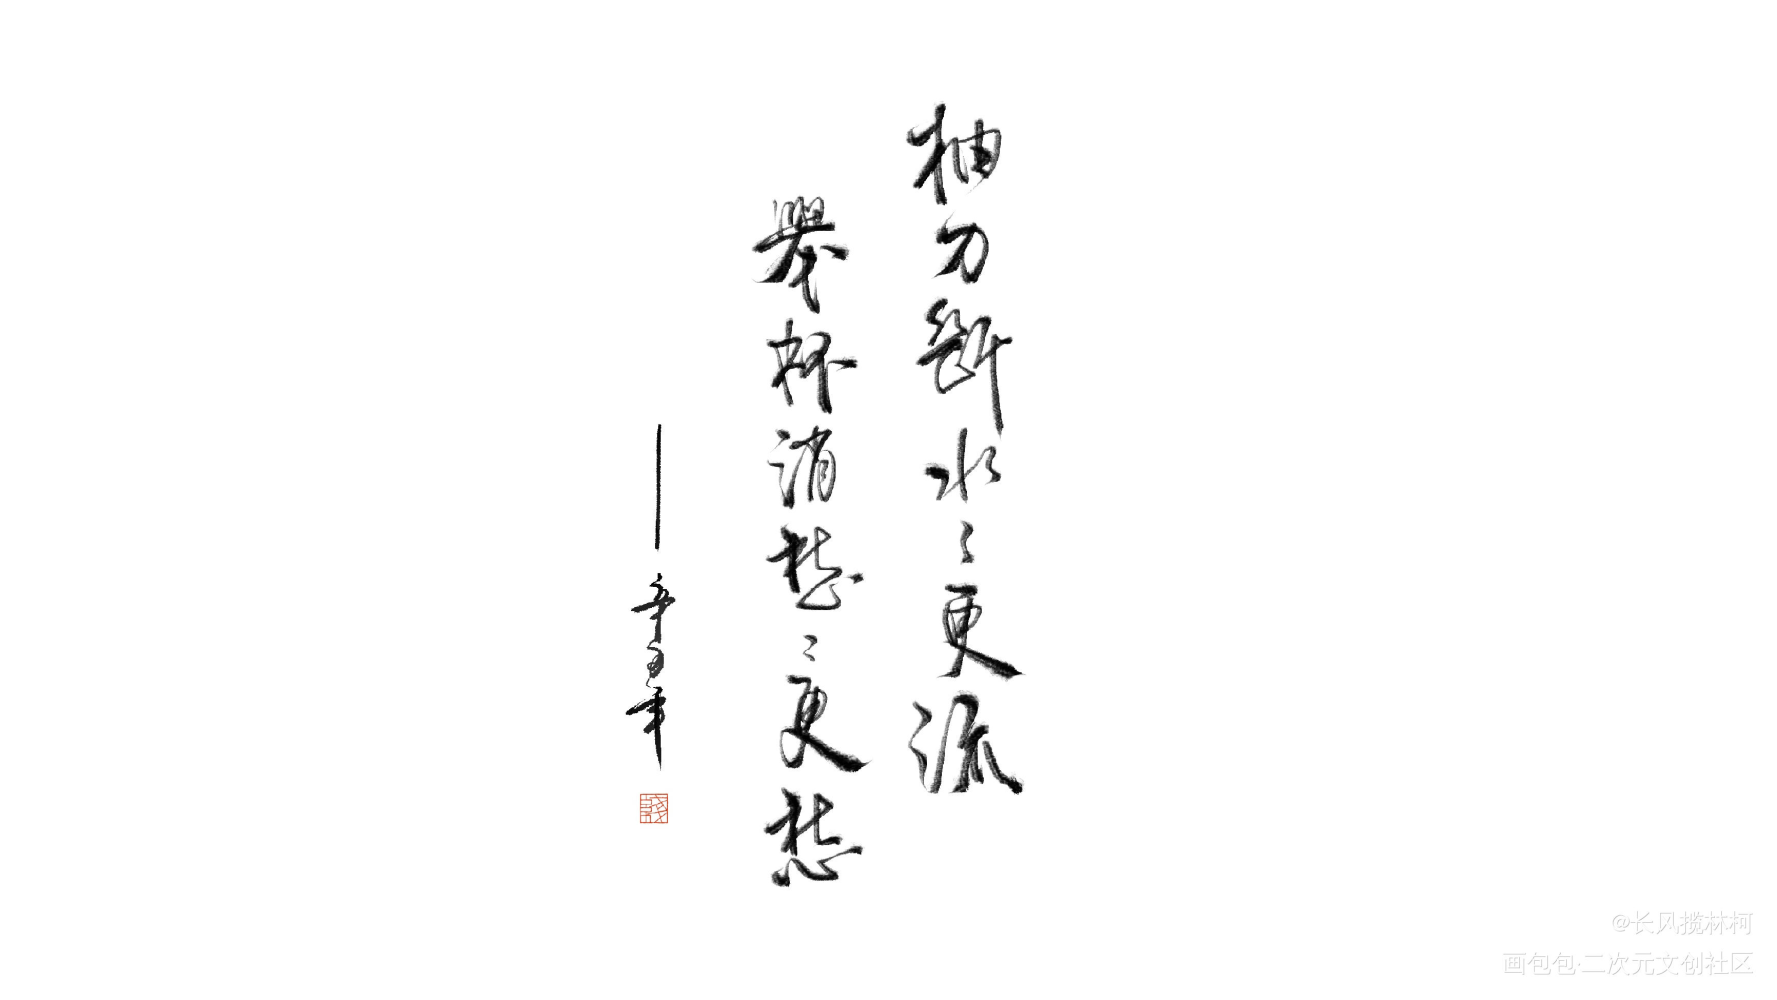 抽刀斷水〻更流
舉杯消愁〻更愁
——辛丑年
@长风揽林柯
画包包·二次元文创社区